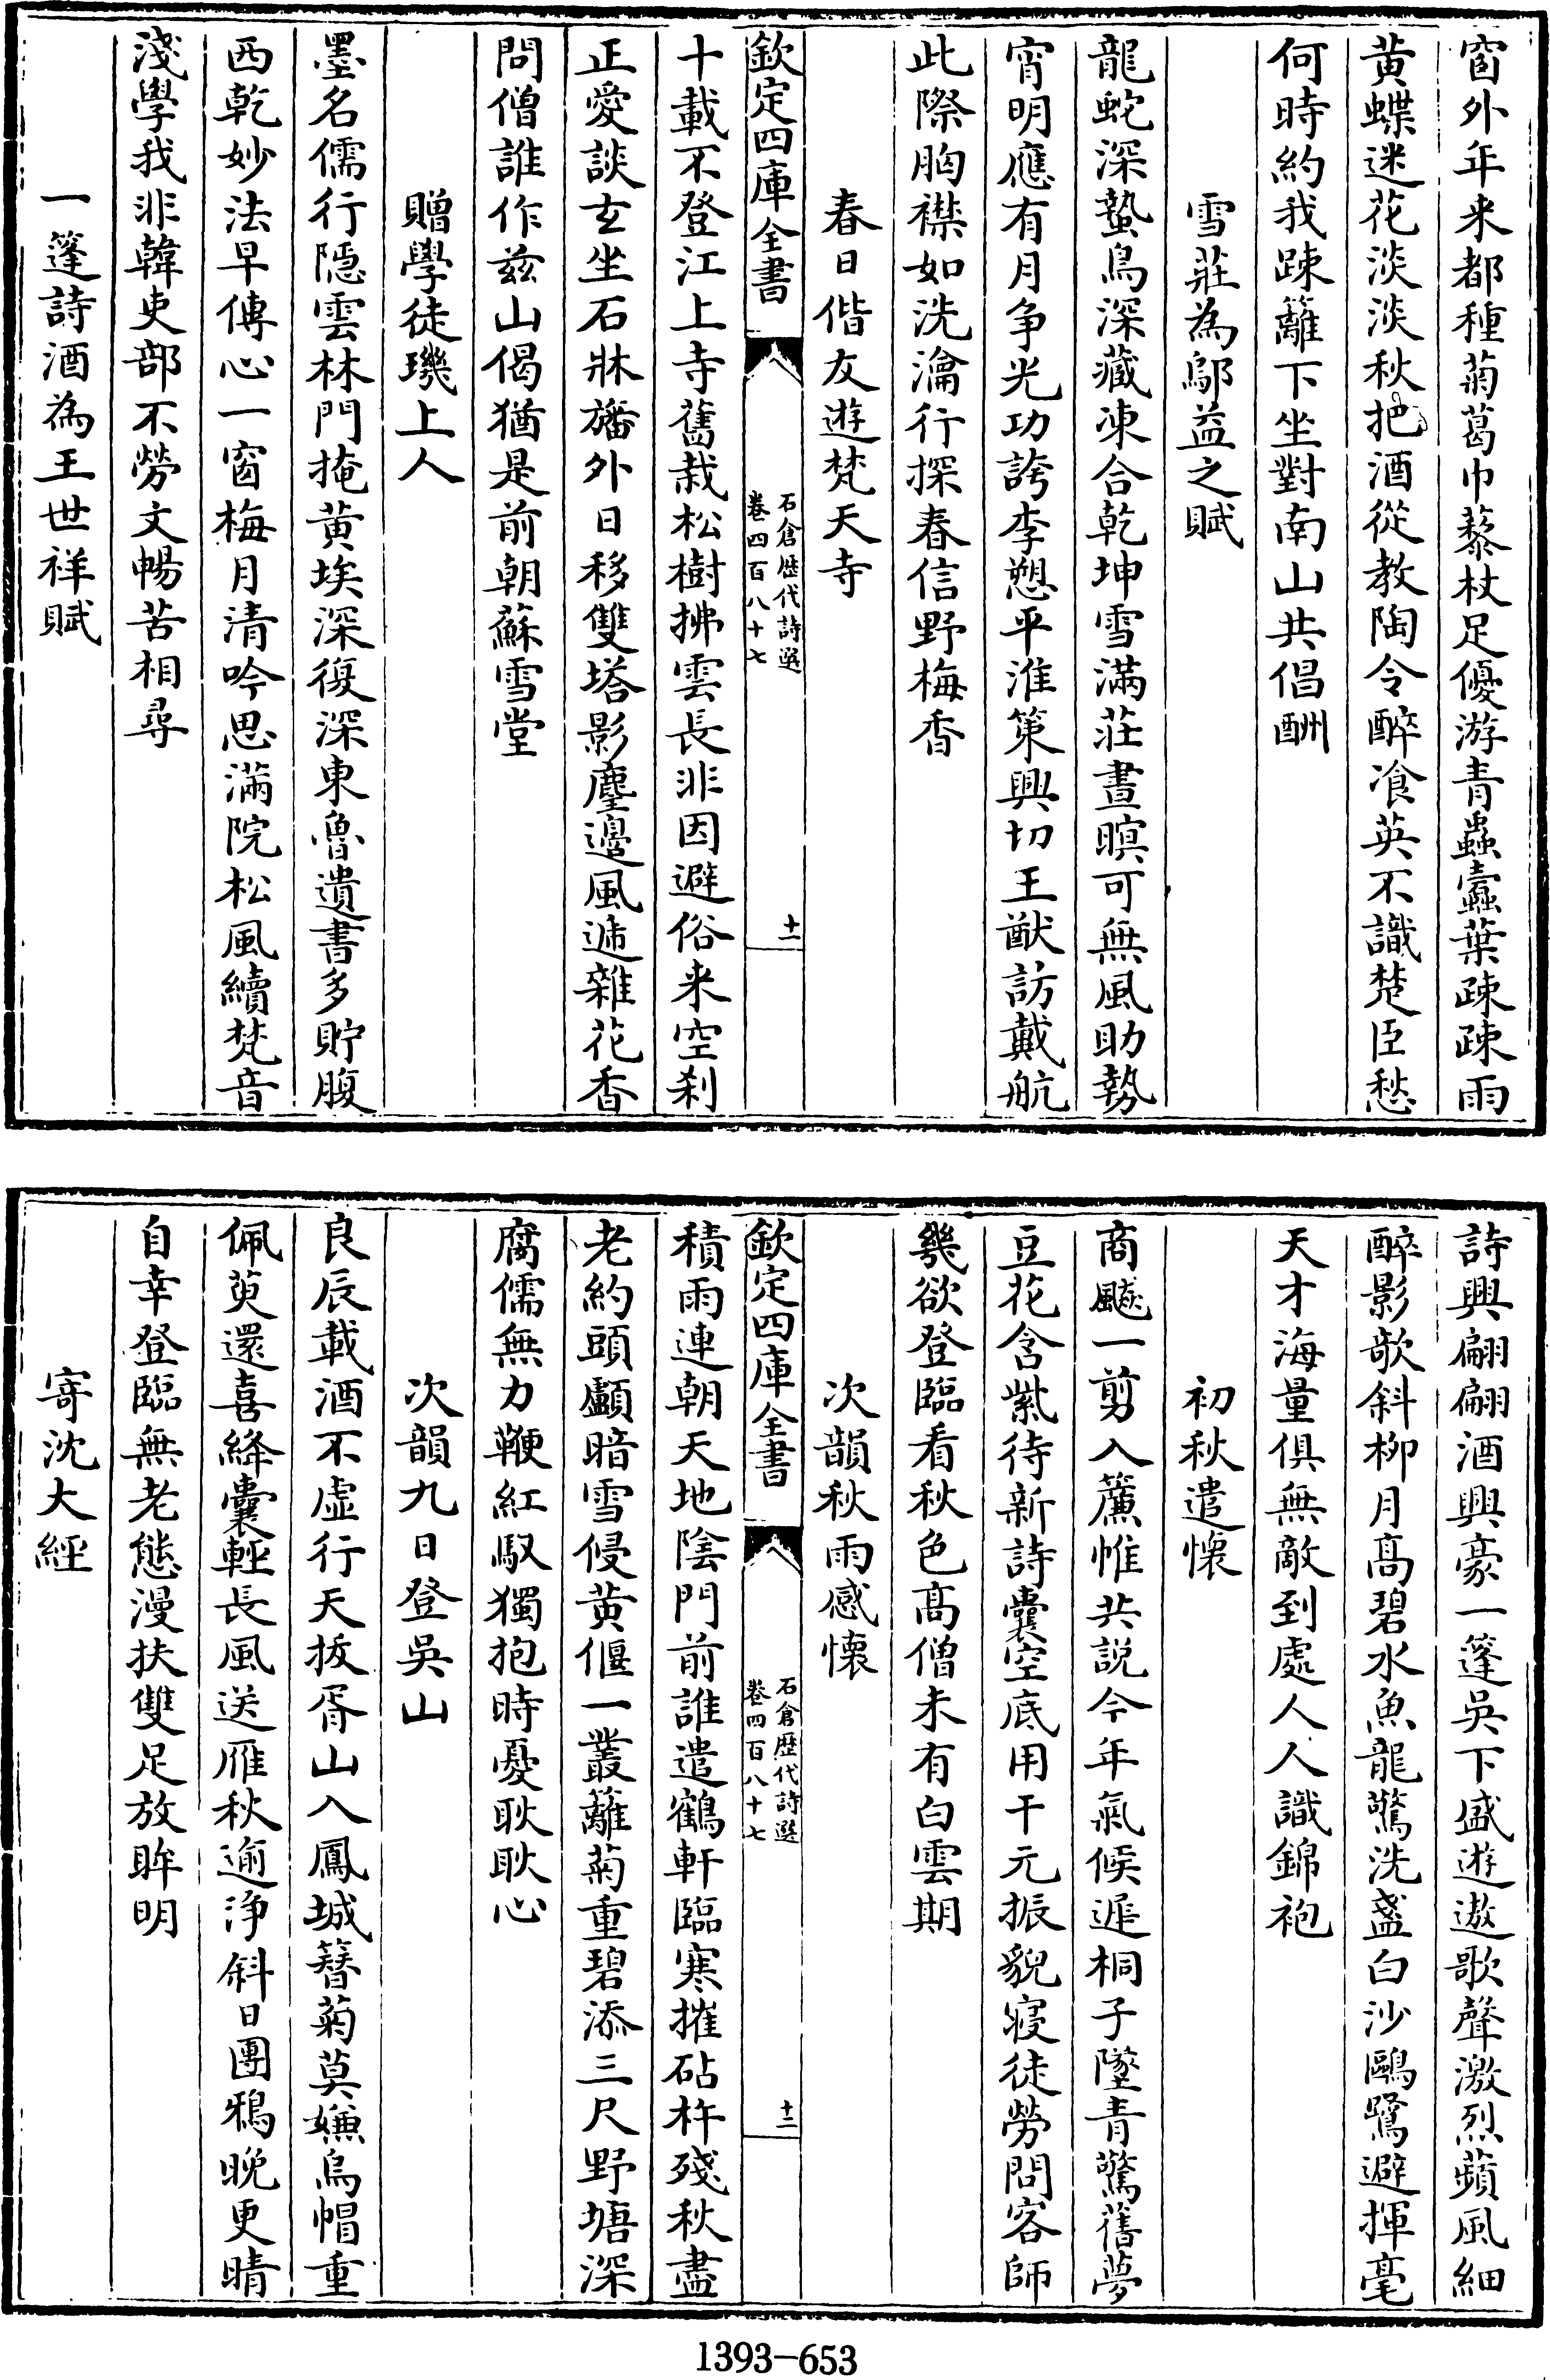 窗外年来都種菊葛巾藜杖足優游青蟲蠧葉疎疎雨
黄蝶迷花淡淡秋把酒從教陶令醉飡英不識楚臣愁
何時約我踈籬下坐對南山共倡酬
雪莊為鄔益之賦
龍蛇深蟄鳥深藏凍合乾坤雪滿莊晝暝可無風助勢
宵明應有月争光功誇李愬平淮策興切王猷訪戴航
此際胸襟如洗瀹行探春信野梅香
春日偕友遊梵天寺
欽定四庫全書
石倉歴代詩選
卷四百八十七
十一
十載不登江上寺舊栽松樹拂雲長非因避俗来空刹
正愛談玄坐石牀旛外日移雙塔影麈邊風逓雜花香
問僧誰作兹山偈猶是前朝蘇雪堂
贈學徒璣上人
墨名儒行隠雲林門掩黄埃深復深東魯遺書多貯腹
西乾妙法早傳心一窗梅月清吟思滿院松風續梵音
淺學我非韓吏部不勞文暢苦相尋
一篷詩酒為王世祥賦
詩興翩翩酒興豪一篷吳下盛遊遨歌聲激烈蘋風細
醉影欹斜柳月髙碧水魚龍驚洗盞白沙鷗鷺避揮毫
天才海量俱無敵到處人人識錦袍
初秋遣懷
商飈一剪入簾帷共説今年氣候遲桐子墜青驚舊夢
豆花含紫待新詩囊空底用干元振貌寢徒勞問客師
幾欲登臨看秋色髙僧未有白雲期
次韻秋雨感懷
欽定四庫全書
石倉歴代詩選
卷四百八十七
十二
積雨連朝天地隂門前誰遣鶴軒臨寒摧砧杵殘秋盡
老約頭顱暗雪侵黄偃一叢籬菊重碧添三尺野塘深
腐儒無力鞭紅馭獨抱時憂耿耿心
次韻九日登吳山
良辰載酒不虚行天拔胥山入鳳城簪菊莫嫌烏帽重
佩萸還喜絳囊輕長風送雁秋逾浄斜日團鴉晚更晴
自幸登臨無老態漫扶雙足放眸明
寄沈大經
1393-653